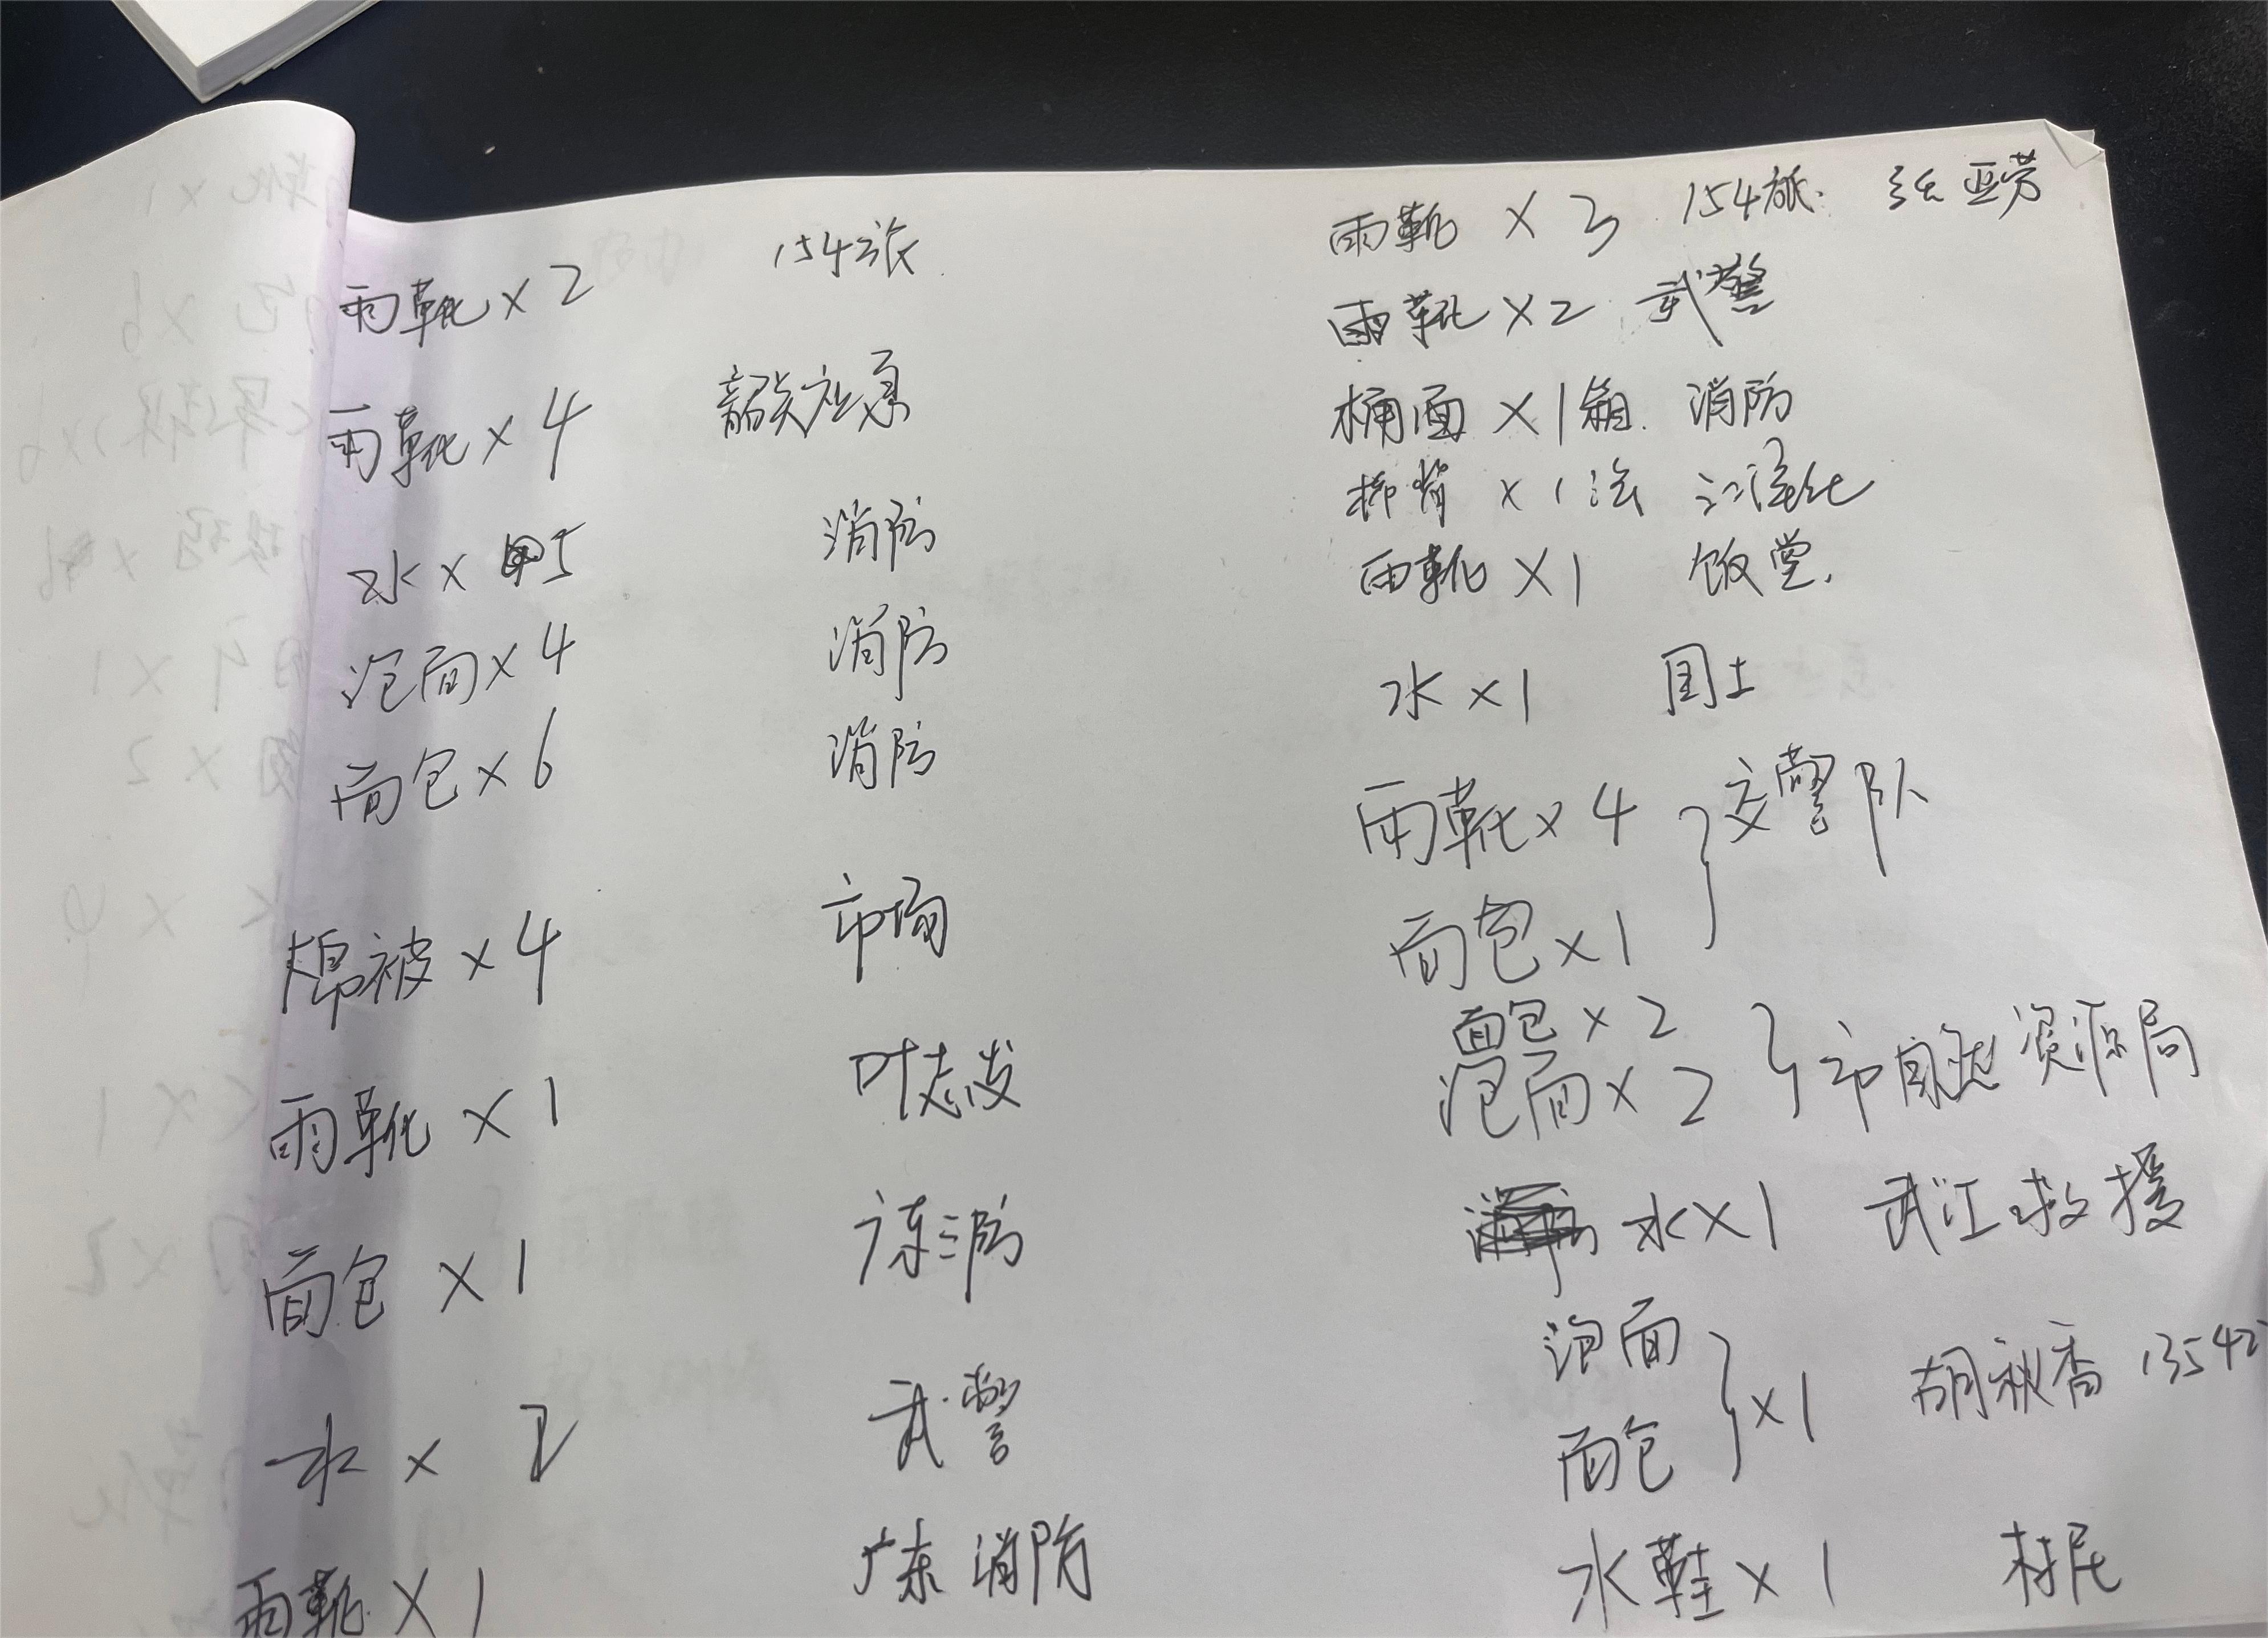 雨靴×2 154旅
雨靴×4 韶关应急
水×5 消防
泡面×4 消防
面包×6 消防
棉被×4 市场
雨靴×1 叶志发
面包×1 广东三防
水×2 武警
雨靴×1 广东消防
雨靴×3 154旅. 张亚劳
雨靴×2 武警
桶面×1箱. 消防
棉背×1
雨靴×1 饭堂.
水×1 国土
雨靴×4 交警队
面包×1
面包×2 市自然资源局
泡面×2
水×1 武江救援
泡面 ×1 胡秋香 1354
面包
水鞋×1 村尾